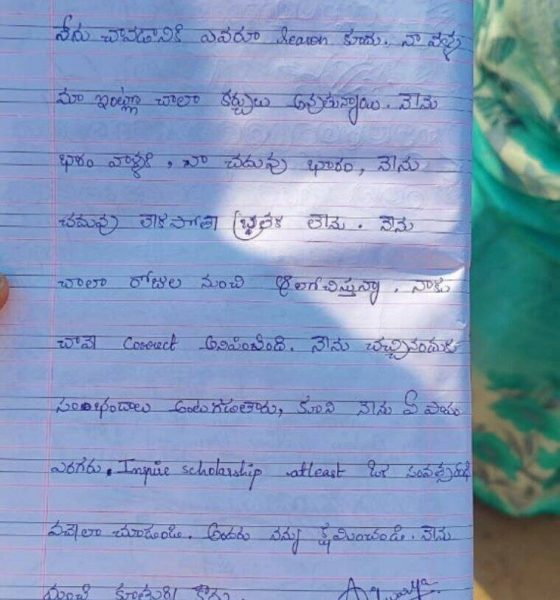 నేను చావడానికి ఎవరూ Reason కాదు. నా వల్ల
మా ఇంట్లో చాలా కర్చులు అవుతున్నాయి. నేను
భారం వాళ్ళకి, నా చదువు భారం, నేను
చదువు లేకపోతే బ్రతక లేను. నేను
చాలా రోజుల నుంచి ఆలోచిస్తున్నా. నాకు
చావే Correct అనిపించింది. నేను చచ్చినందుకు
అంటగడతారు, కానీ నేను ఏ పాపం
ఎరగను. Inspire scholarship atleast ఒక
వచ్చేలా చూడండి. అందరు నన్ను క్షమించండి. నేను
మంచి కూతురిని కాదు.